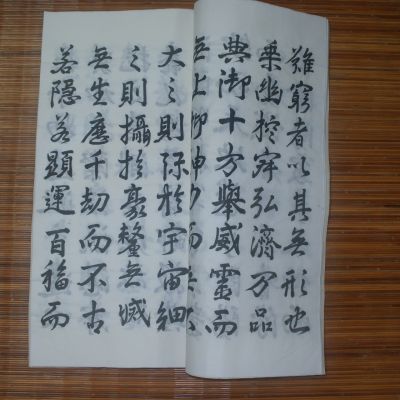 難窮者以其無形也
乘幽控寂弘濟万品
典御十方舉威靈而
無上抑神力而無
大之則弥於宇宙細
之則攝於豪釐無滅
無生歷千劫而不古
若隱若顯運百福而